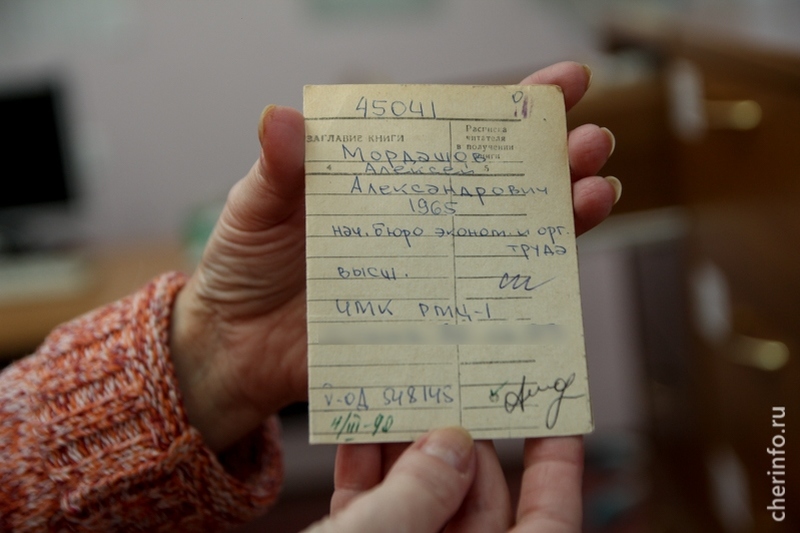 45041
ЗАГЛАВИЕ КНИГИ
Расписка
читателя
в получении
книги
Мордашов
Алексей
Александрович
1965
нач. бюро эконом. и орг.
труда
высш.
ЧМК РМЦ-1
V-ОД 548145
4/III-90
cherinfo.ru